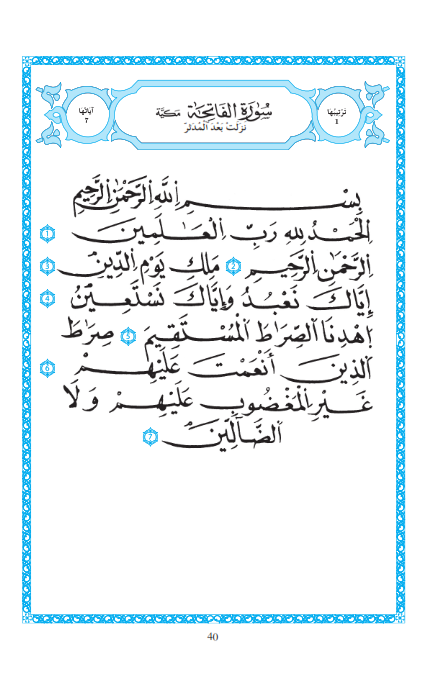 تَرْتِيبُهَا
1
سُورَةُ الْفَاتِحَةِ مَكيَّة
نَزَلَتْ بَعْدَ الْمُدَّثِّر
آيَاتُهَا
7
بِسْمِ اِ۬للَّهِ اِ۬لرَّحْمَٰنِ اِ۬لرَّحِيمِ
اَ۬لْحَمْدُ لِلهِ رَبِّ اِ۬لْعَٰلَمِينَ 1
اَ۬لرَّحْمَٰنِ اِ۬لرَّحِيمِ 2 مَلِكِ يَوْمِ اِ۬لدِّينِ 3
إِيَّاكَ نَعْبُدُ وَإِيَّاكَ نَسْتَعِينُ 4
اَ۪هْدِنَا اَ۬لصِّرَٰطَ اَ۬لْمُسْتَقِيمَ 5 صِرَٰطَ
اَ۬لذِينَ أَنْعَمْتَ عَلَيْهِمْ 6
غَيْرِ اِ۬لْمَغْضُوبِ عَلَيْهِمْ وَلَا
اَ۬لضَّآلِّينَ 7
40